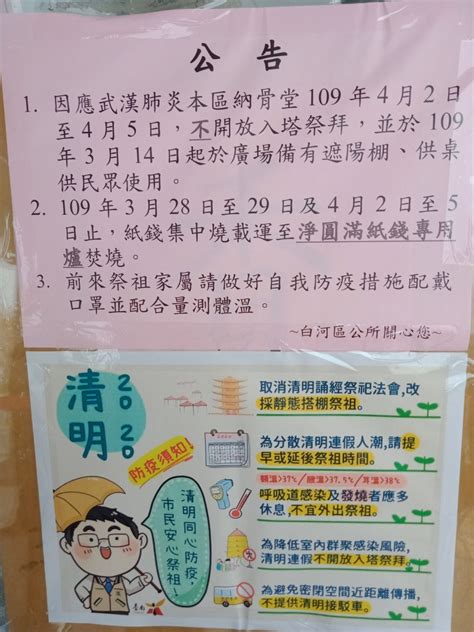 公告
1. 因應武漢肺炎本區納骨堂 109 年 4 月 2 日
至 4 月 5 日，不開放入塔祭拜，並於 109
年 3 月 14 日起於廣場備有遮陽棚、供桌
供民眾使用。
2. 109 年 3 月 28 日至 29 日及 4 月 2 日至 5
日止，紙錢集中燒載運至淨圓滿紙錢專用
爐焚燒。
3. 前來祭祖家屬請做好自我防疫措施配戴
口罩並配合量測體溫。
~白河區公所關心您~
2020
清明
防疫須知!
清明同心防疫，
市民安心祭祖!
取消清明誦經祭祀法會,改
採靜態搭棚祭祖。
為分散清明連假人潮,請提
早或延後祭祖時間。
額溫>37℃/腋溫>37.5℃/耳溫>38℃
呼吸道感染及發燒者應多
休息,不宜外出祭祖。
為降低室內群聚感染風險,
清明連假不開放入塔祭拜。
為避免密閉空間近距離傳播,
不提供清明接駁車。